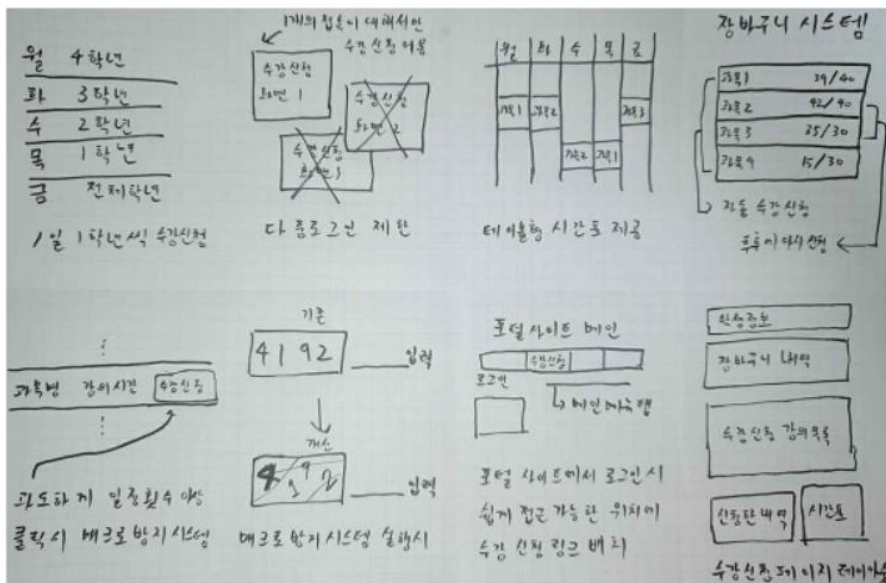 월 4학년
화 3학년
수 2학년
목 1학년
금 전체학년
1일 1학년씩 수강신청
1개의 접속에 대해서만
수강신청 허용
수강신청
화면 1
수강신청
화면 2
수강신청
화면 3
다중로그인 제한
월 화 수 목 금
과목1 과목2 과목3
과목2 과목1
테이블형 시간표 제공
장바구니 시스템
과목1 39/40
과목2 42/40
과목3 35/30
과목4 15/30
자동 수강신청
추후에 다시 신청
과목명 강의시간 수강신청
과도하게 일정횟수 이상
클릭시 매크로 방지 시스템
기존
4192 입력
개선
4192 입력
매크로 방지 시스템 실행시
포털 사이트 메인
수강신청
로그인
메인메뉴탭
포털 사이트에서 로그인 시
쉽게 접근 가능한 위치에
수강 신청 링크 배치
학생정보
장바구니 내역
수강신청 강의목록
신청한 내역 시간표
수강신청 페이지 레이아웃